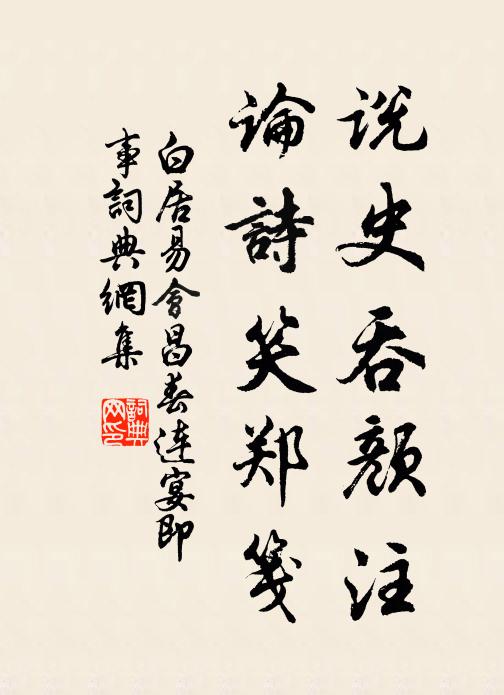 说史吞颜注
論詩笑郑笺
白居易會昌春连宴即
事詞典網集
詞典
网印